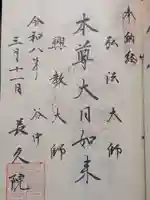 奉納経
弘法大師
本尊大日如来
興教大師
谷中
長久院
令和八年
三月二十一日